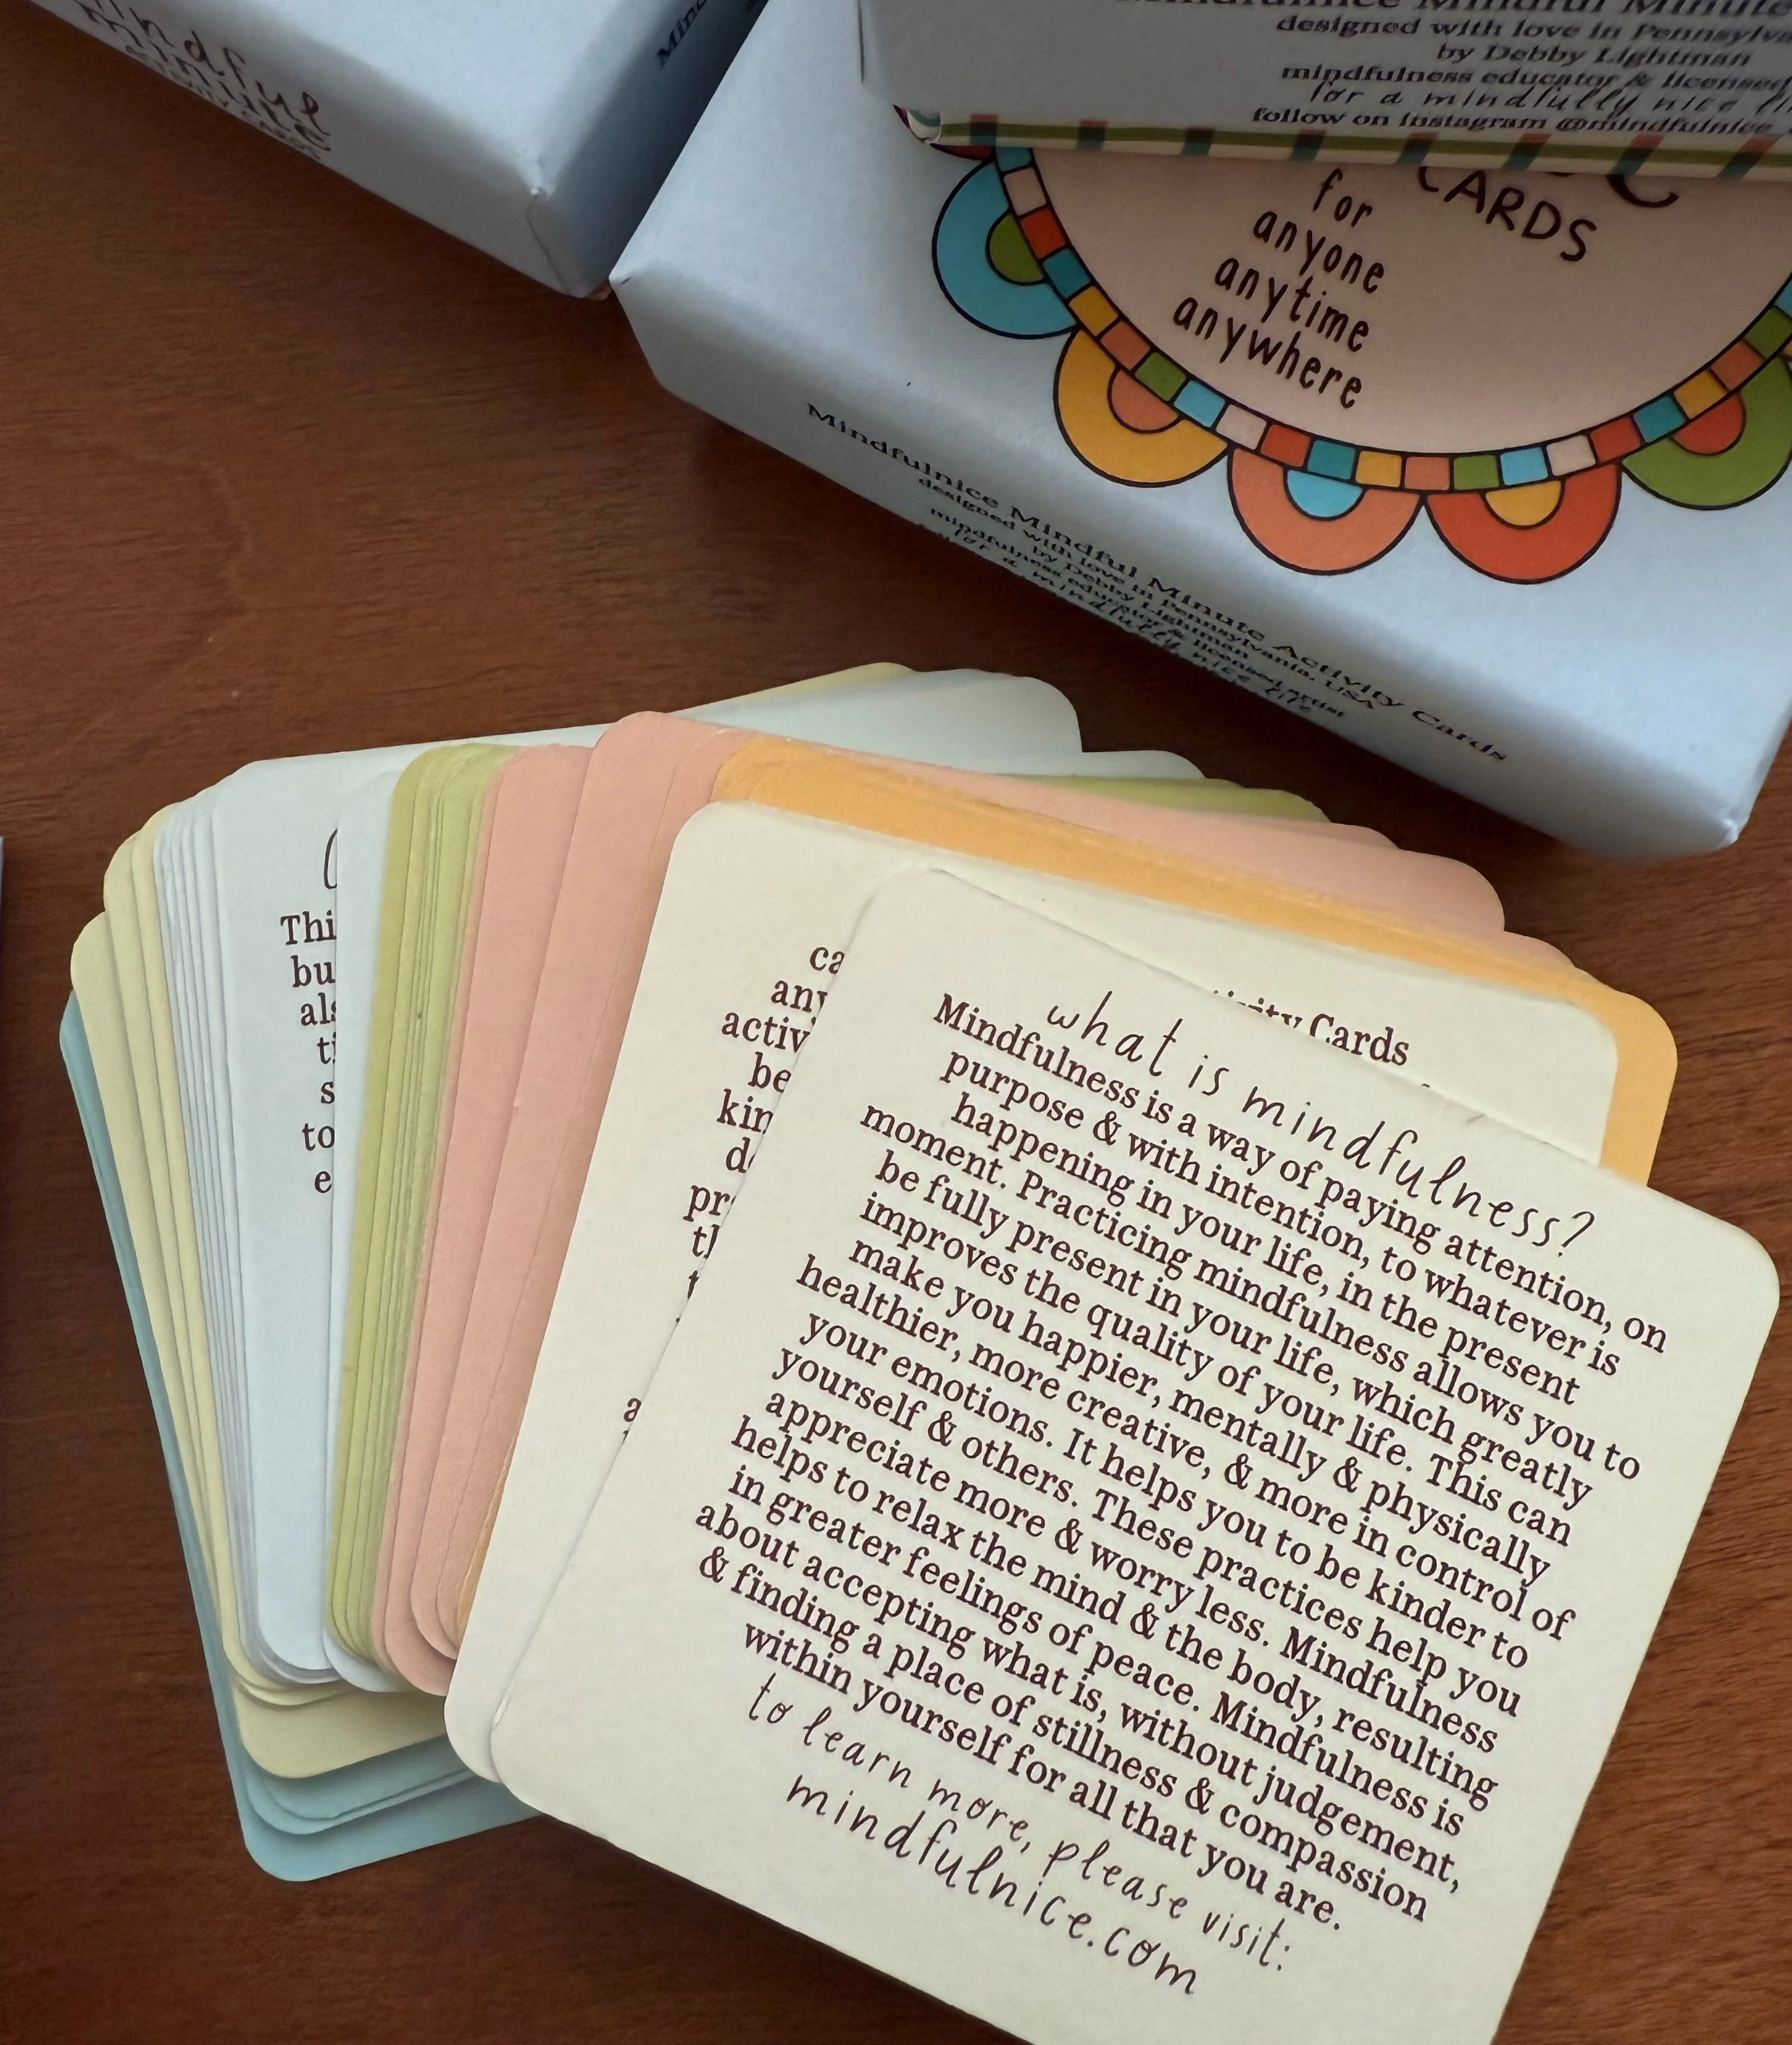 mindful
minute
Mindfulnice Mindful Minute
designed with love in
by Debby Lightman
mindfulness educator & licensed
for a mindfully nice
follow on instagram @mindfulnice
CARDS
for
anyone
anytime
anywhere
Mindfulnice Mindful Minute Activity Cards
designed with love in Pennsylvania, USA
by Debby Lightman
mindfulness educator & licensed artist
for a mindfully nice life
Thi
bu
als
ti
s
to
e
ca
any
activ
be
kin
pr
Cards
what is mindfulness?
Mindfulness is a way of paying attention, on
purpose & with intention, to whatever is
happening in your life, in the present
moment. Practicing mindfulness allows you to
be fully present in your life, which greatly
improves the quality of your life. This can
make you happier, mentally & physically
healthier, more creative, & more in control of
your emotions. It helps you to be kinder to
yourself & others. These practices help you
appreciate more & worry less. Mindfulness
helps to relax the mind & the body, resulting
in greater feelings of peace. Mindfulness is
about accepting what is, without judgement,
& finding a place of stillness & compassion
within yourself for all that you are.
to learn more, please visit:
mindfulnice.com